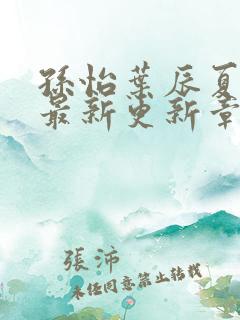 孫怡葉辰夏
最新更新章
張沛
未經同意禁止轉載